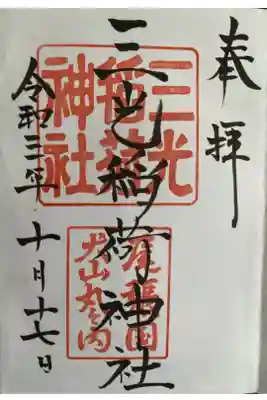 奉拝
三光稲荷神社
三光稲荷神社
尾張国犬山丸之内
令和三年十月十七日